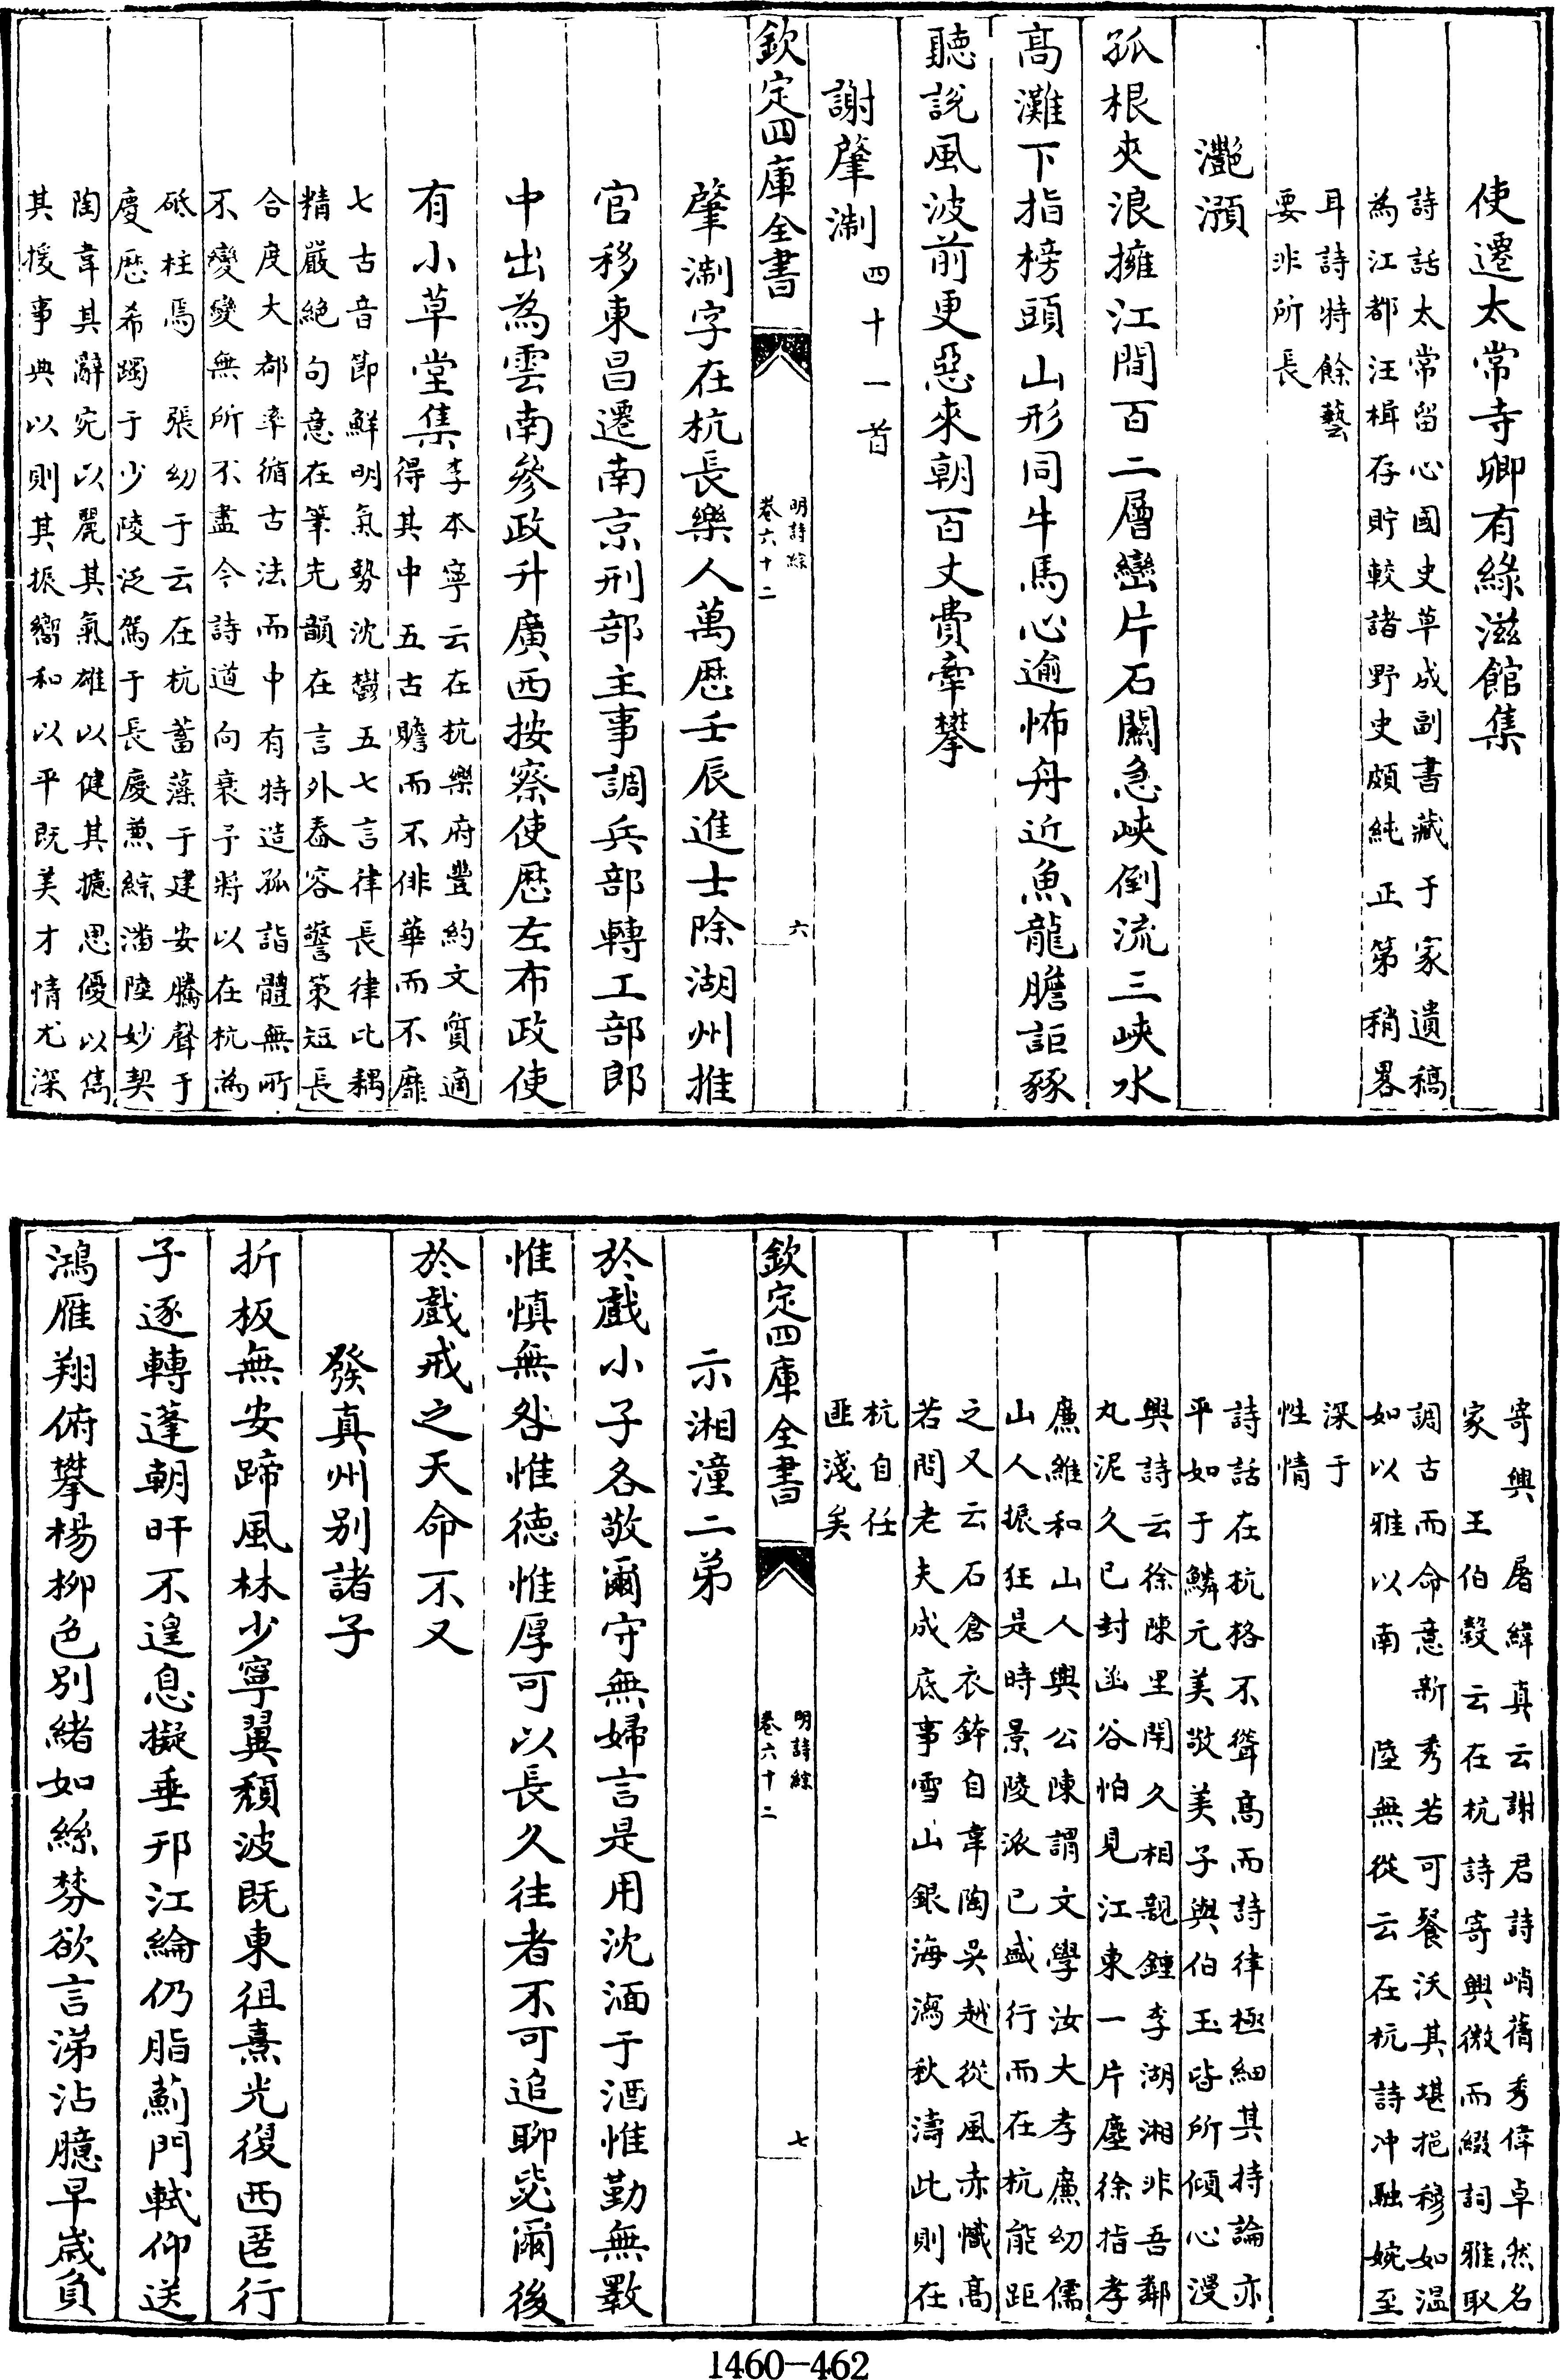 使遷太常寺卿有綠滋館集
詩話太常留心國史草成副書藏于家遺稿
為江都汪楫存貯較諸野史頗純正第稍畧
耳詩特餘藝
要非所長
灔澦
孤根夾浪擁江間百二層巒片石關急峽倒流三峽水
高灘下指榜頭山形同牛馬心逾怖舟近魚龍膽詎豩
聽說風波前更惡來朝百丈費牽攀
謝肇淛四十一首
欽定四庫全書
明詩綜
卷六十二
六
肇淛字在杭長樂人萬厯壬辰進士除湖州推
官移東昌遷南京刑部主事調兵部轉工部郎
中出為雲南參政升廣西按察使厯左布政使
有小草堂集
李本寧云在杭樂府豐約文質適
得其中五古贍而不俳華而不靡
七古音節鮮明氣勢沈鬱五七言律長律比耦
精嚴絕句意在筆先韻在言外舂容警策短長
合度大都率循古法而中有特造孤詣體無所
不變變無所不盡今詩道向衰予將以在杭為
砥柱焉 張幼于云在杭蓄藻于建安騰聲于
慶厯希躅于少陵泛駕于長慶兼綜潘陸妙契
陶韋其辭宛以麗其氣雄以健其攄思優以雋
其援事典以則其振嚮和以平既美才情尤深
寄興 屠緯真云謝君詩峭蒨秀偉卓然名
家 王伯穀云在杭詩寄興微而綴詞雅取
調古而命意新秀若可餐沃其堪挹穆如溫
如以雅以南 陸無從云在杭詩冲融婉至
深于
性情
詩話在杭格不聳高而詩律極細其持論亦
平如于鱗元美敬美子與伯玉皆所傾心漫
興詩云徐陳里閈久相親鍾李湖湘非吾鄰
丸泥久已封函谷怕見江東一片塵徐指孝
廉維和山人興公陳謂文學汝大孝廉幼儒
山人振狂是時景陵派已盛行而在杭能距
之又云石倉衣鉢自韋陶吳越從風赤幟高
若問老夫成底事雪山銀海瀉秋濤此則在
杭自任
匪淺矣
欽定四庫全書
明詩綜
卷六十二
七
示湘潼二弟
於戲小子各敬爾守無婦言是用沈湎于酒惟勤無斁
惟慎無咎惟德惟厚可以長久往者不可追聊毖爾後
於戲戒之天命不又
發真州別諸子
折板無安蹄風林少寧翼頹波既東徂熹光復西匿行
子逐轉蓬朝旰不遑息擬垂邗江綸仍脂薊門軾仰送
鴻雁翔俯攀楊柳色別緒如絲棼欲言涕沾臆早歲負
1460—462